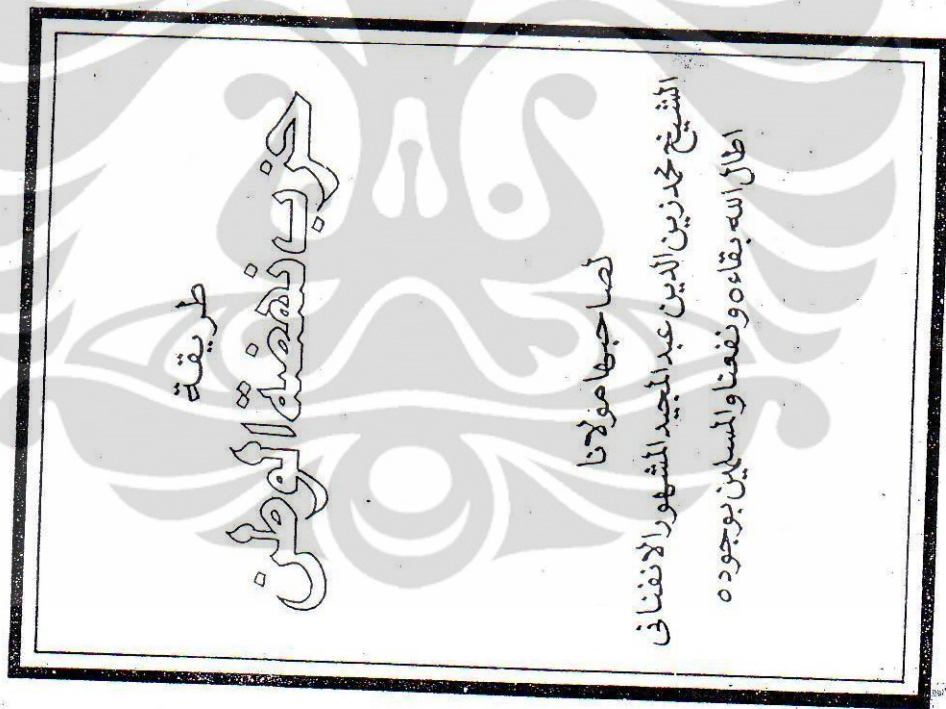 طريقة
حزب نهضة الوطن
لصاحبها مولانا
الشيخ محمد زين الدين عبد المجيد المشهور الانفناني
اطال الله بقاءه ونفعنا والمسلمين بوجوده